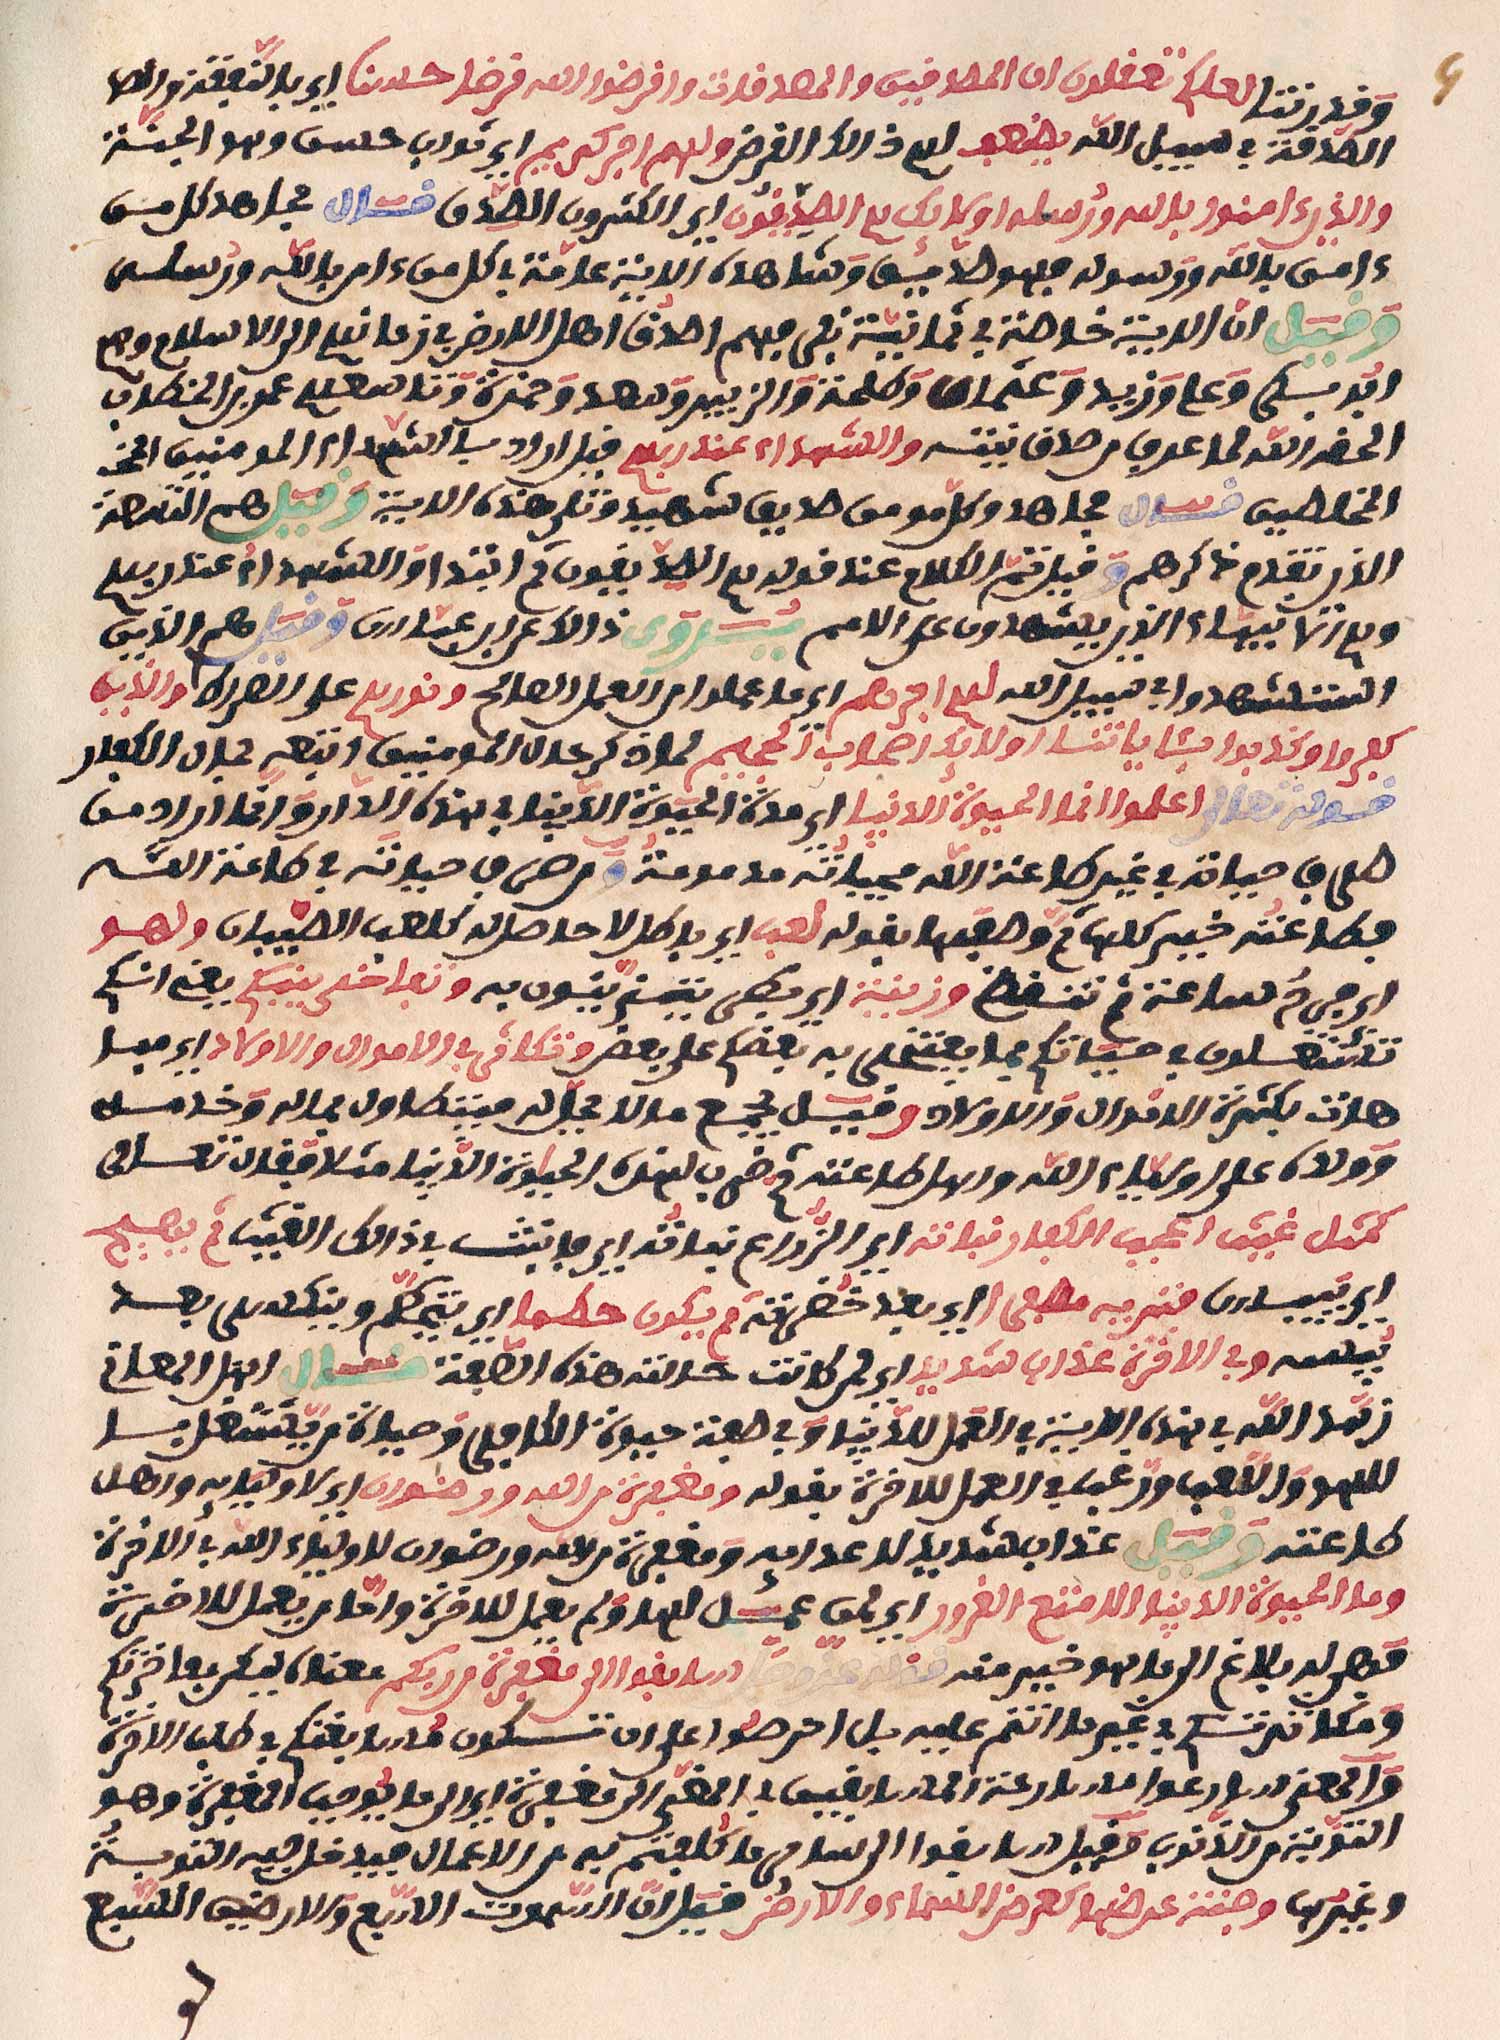 وقدرتنا لعلكم تعقلون ان المصدقين والمصدقات واقرضوا الله قرضا حسنا اي بالنفقة والصد
الصدقة في سبيل الله يضعف لهم ذالك القرض ولهم اجر كريم اي ثواب حسن وهو الجنة
والذين ءامنوا بالله ورسله اولئك هم الصديقون اي الكثيرون الصدق قال مجاهد كل من
ءامن بالله ورسوله فهو صديق وتلا هذه الاية عامة في كل من ءامن بالله ورسله
وقيل ان الاية خاصة في ثمانية نفر فهم اهل الارض في زمانهم الى الاسلام وهم
ابو بكر وعلي وزيد وعثمان وطلحة والزبير وسعد وحمزة وتاسعهم عمر بن الخطاب
الحقه الله لما عرف من صدق نيته والشهداء عند ربهم قيل اراد بالشهداء المومنين المخ
المخلصين قال مجاهد وكل مومن صديق شهيد وتلى هذه الاية وقيل هم التسعة
الذي تقدم ذكرهم وقيل تم الكلام عند قوله هم الصديقون ثم ابتدا والشهداء عند ربهم
وهم الانبياء الذين يشهدون على الامم يروى ذالك عن ابن عباس وقيل هم الذين
استشهدوا في سبيل الله لهم اجرهم اي ما عملوا من العمل الصالح ونورهم على الصراط والذين
كفروا وكذبوا بئاياتنا اولئك اصحاب الجحيم لما ذكر حال المومنين اتبعه بحال الكفار
قوله تعالى اعلموا انما الحيوة الدنيا اي مدة الحيوة الدنيا في هذه الدار وانما اراد من
صرف حياته في غير طاعة الله فحياته مذمومة ومن صرف حياته في طاعة الله
فطاعته خير كلها ثم وصفها بقوله لعب اي باطل لا حاصل له كلعب الصبيان ولهو
اي فرح ساعة ثم تنقضي وزينة اي منظر يتزينون به وتفاخر بينكم يعني انكم
تشتغلون في حياتكم بما يفتخر به بعضكم على بعض وتكاثر في الاموال والاولاد اي مبا
هات بكثرة الاموال والاولاد وقيل بجمع ما لا يحل له فيتطاول بماله وخدمه
وولده على اولياء الله واهل طاعته ثم ضرب لهذه الحيوة الدنيا مثلا فقال تعالى
كمثل غيث اعجب الكفار نباته اي الزراع نباته اي ما ينبت في ذالك الغيث ثم يهيج
اي ييبس فتريه مصفرا اي بعد خضرته ثم يكون حطاما اي يتحطم ويتكسر بعد
يبسه وفي الاخرة عذاب شديد اي لمن كانت حالته هذه الصفة قال اهل المعاني
زهد الله في هذه الاية في العمل للدنيا وفي صفة حيوة الكافر وحياة من يشتغل با
للهو واللعب ورغب في العمل للاخرة بقوله ومغفرة من الله ورضوان اي لاوليايه واهل
طاعته وقيل عذاب شديد لاعدايه ومغفرة من الله ورضوان لاولياء الله في الاخرة
وما الحيوة الدنيا الا متع الغرور اي لمن عمل لها ولم يعمل للاخرة واما من يعمل للاخرة
فهي له بلاغ الى ما هو خير منه قوله عز وجل سابقوا الى مغفرة من ربكم معناه ليكن مفاخرتكم
ومكاثرتكم في غير ما انتم عليه بل احرصوا على ان تكون مسابقتكم في طلب الاخرة
والمعنى سارعوا مسارعة المسابقين في المضمار الى مغفرة اي الى ما يوجب المغفرة وهو
التوبة من الذنوب وقيل سابقوا الى ساير ما كلفتم به من الاعمال فيدخل فيه التوبة
وغيرها وجنة عرضها كعرض السماء والارض قيل ان السموت السبع والارضين السبع